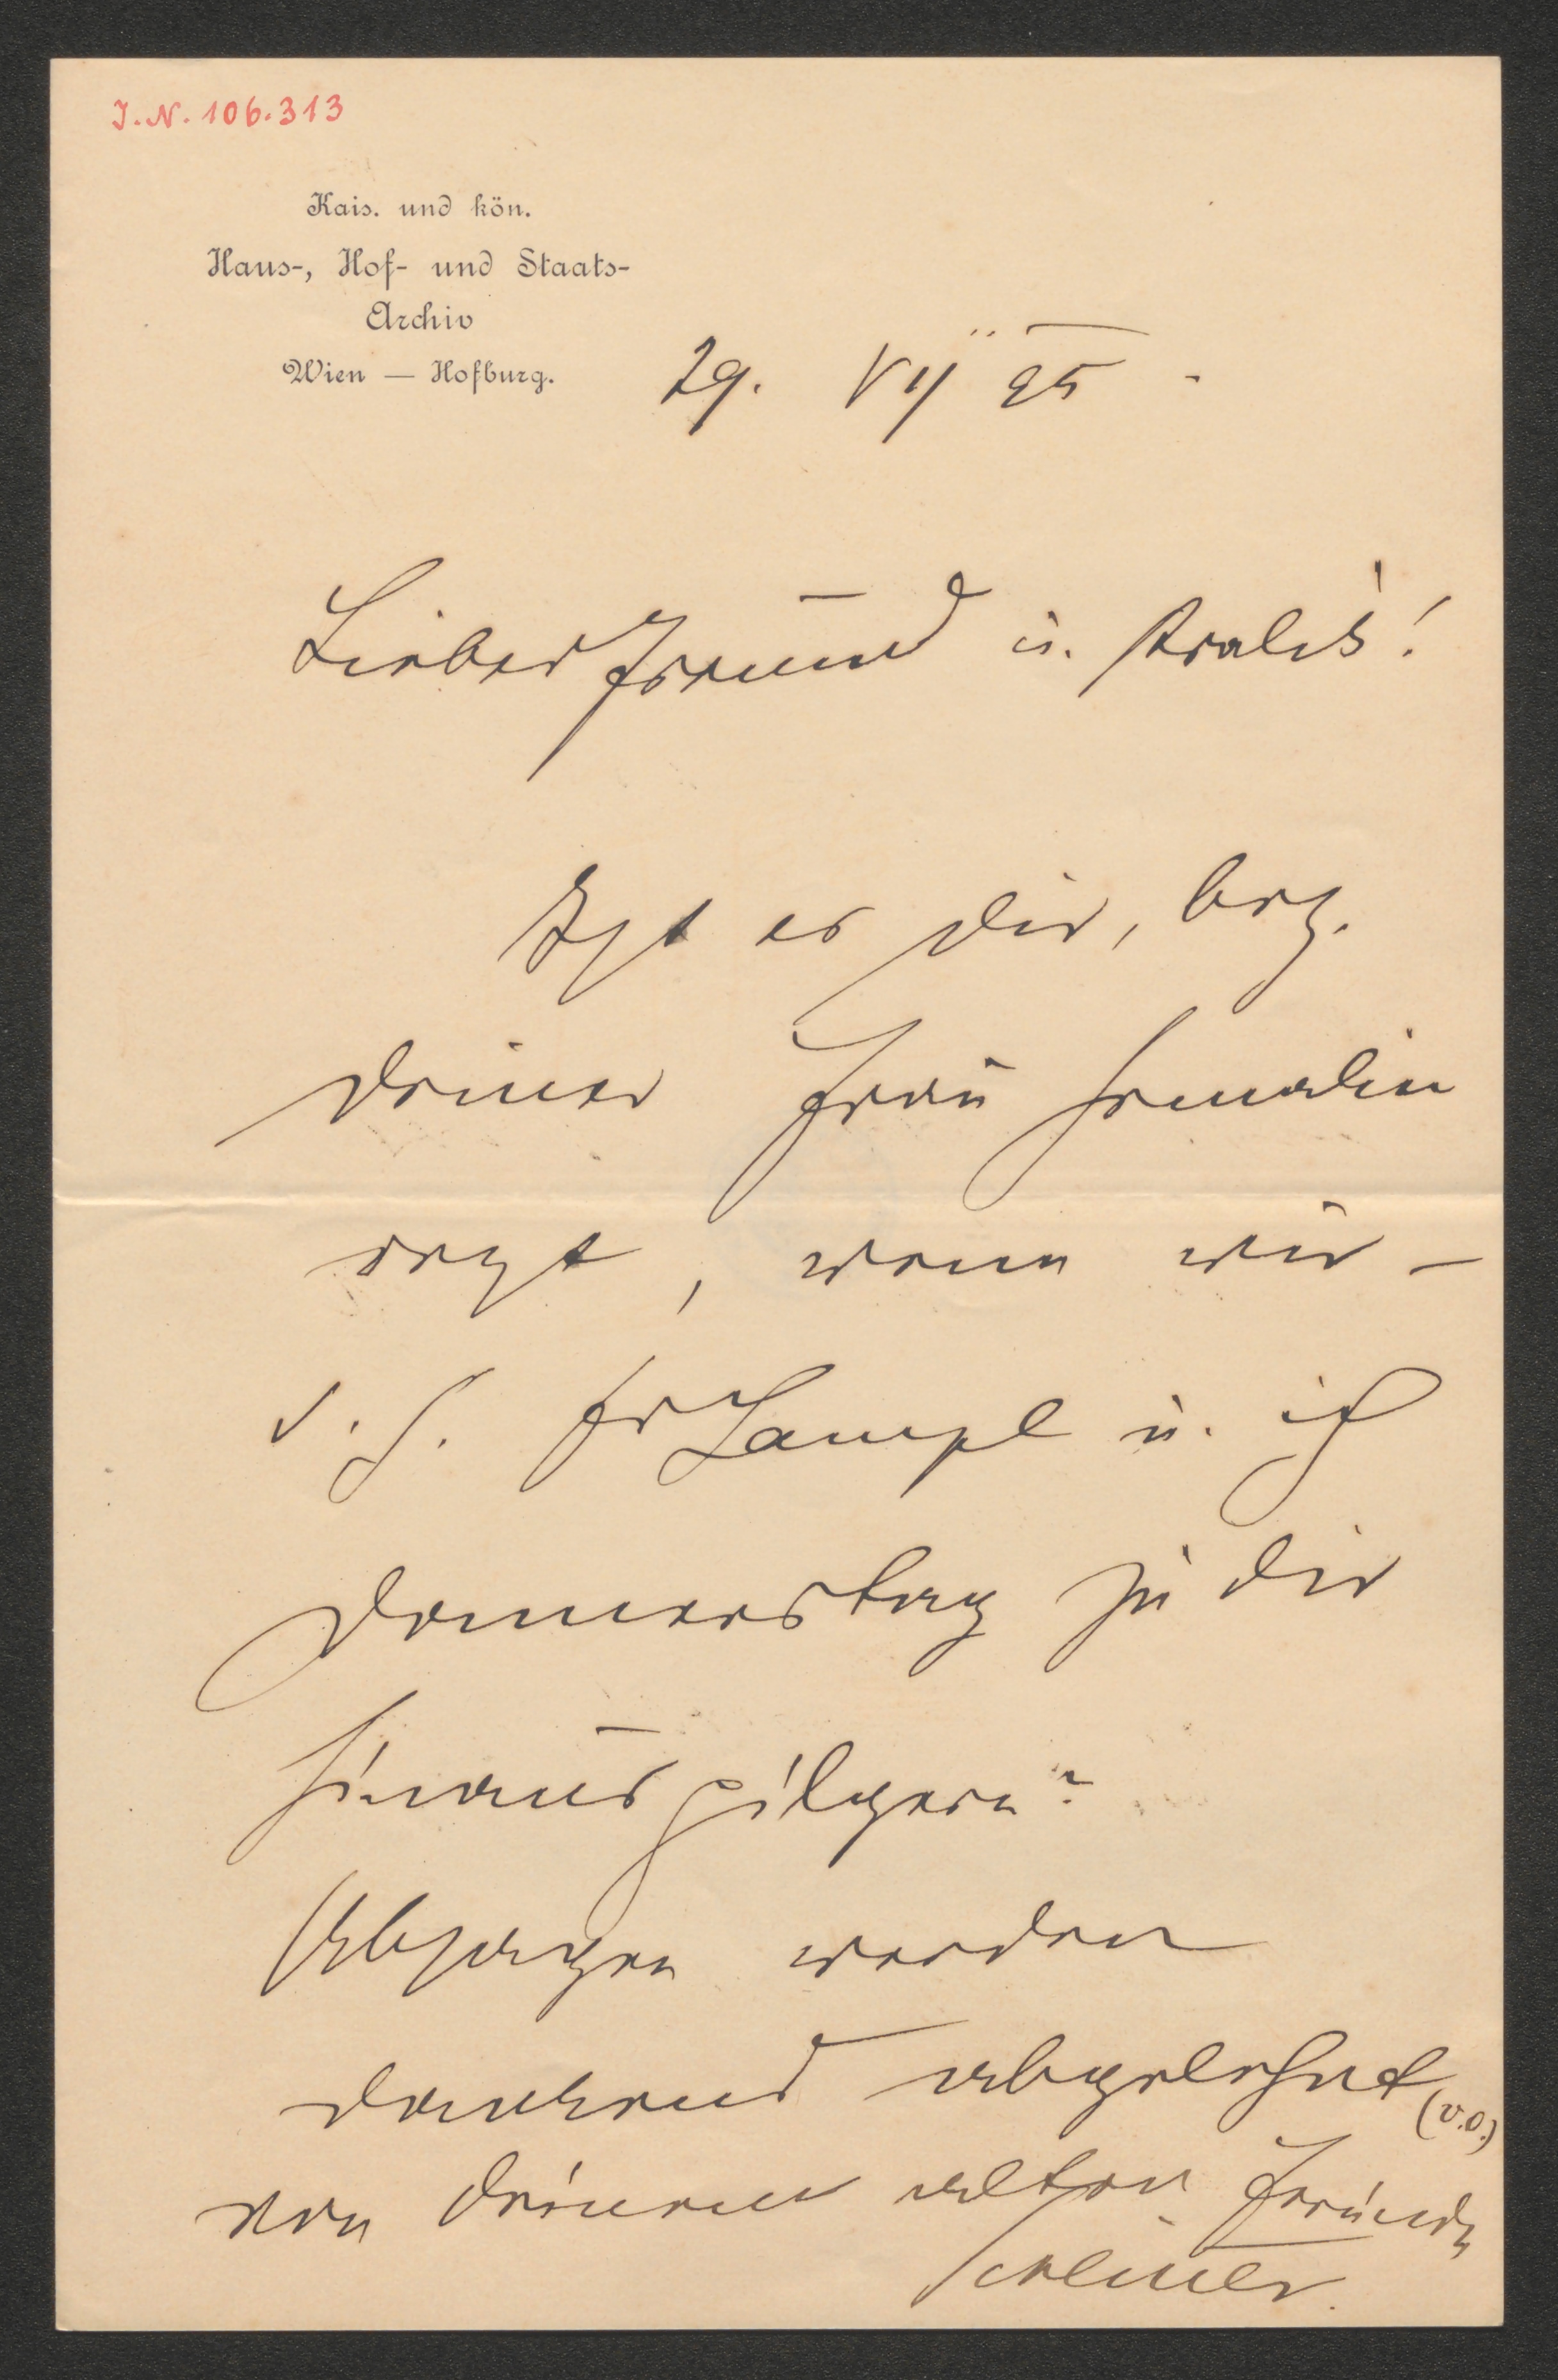 I.N. 106.313
Kais. und kön.
Haus-, Hof- und Staats-
Archiv
Wien — Hofburg.
29. VII 95
Lieber Freund u.
Ist es dir, bez.
deiner Frau Gemalin
recht, wenn wir –
d. h. Hr Lampl u. ich
Donnerstag zu dir
hinauspilgern?
Absagen werden
dankend abgelehnt
(v.o.)
von deinem alten Freunde